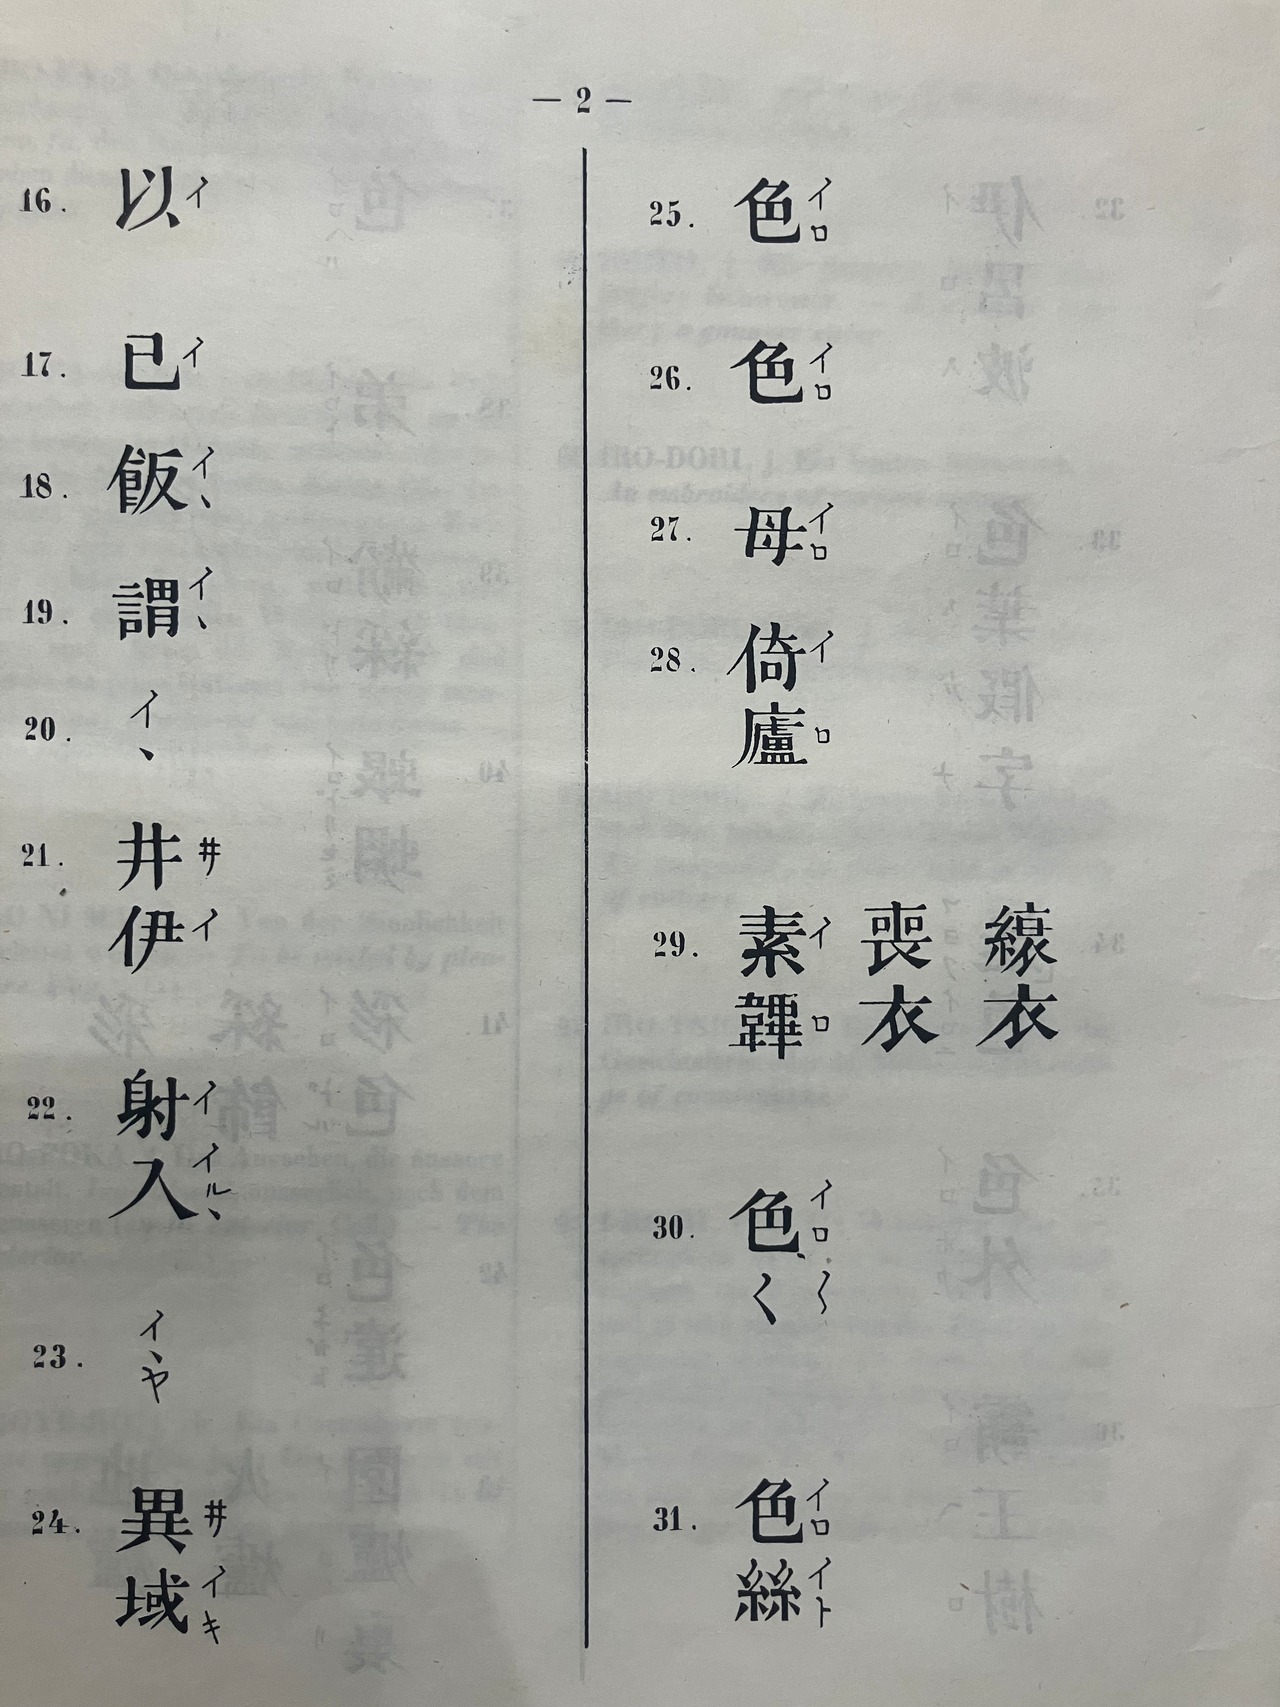 — 2 —
16. 以 イ
17. 已 イ
18. 飯 イヽ
19. 謂 イヽ
20. イヽ
21. 井 井
伊 イ
22. 射 イ
入 イルヽ
23. イヽヤ
24. 異 井
域 イキ
25. 色 イロ
26. 色 イロ
27. 母 イロ
28. 倚 イ
廬 ロ
29. 素 イ 喪 縗
韠 ロ 衣 衣
30. 色 イロ
〱 〱
31. 色 イロ
絲 イト